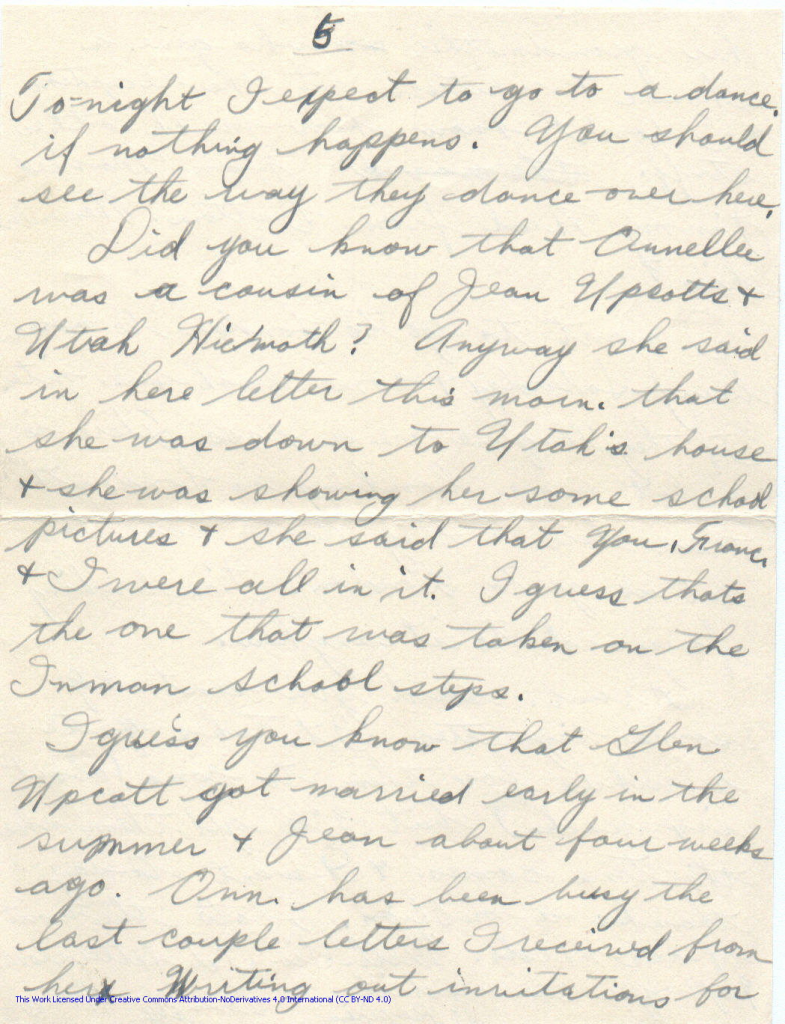 5
To=night I expect to go to a dance,
if nothing happens. You should
see the way they dance over here,
Did you know that Annellee
was a cousin of Jean Upcotts +
Utah Hickmoth? Anyway she said
in here letter this morn. that
she was down to Utah's house
+ she was showing her some school
pictures + she said that You, Franc.
+ I were all in it. I guess thats
the one that was taken on the
Inman school steps.
I guess you know that Glen
Upcott got married early in the
summer + Jean about four weeks
ago. Ann. has been busy the
last couple letters I received from
her Writing out invitations for
This Work Licensed Under Creative Commons Attribution-NoDerivatives 4.0 International (CC BY-ND 4.0)